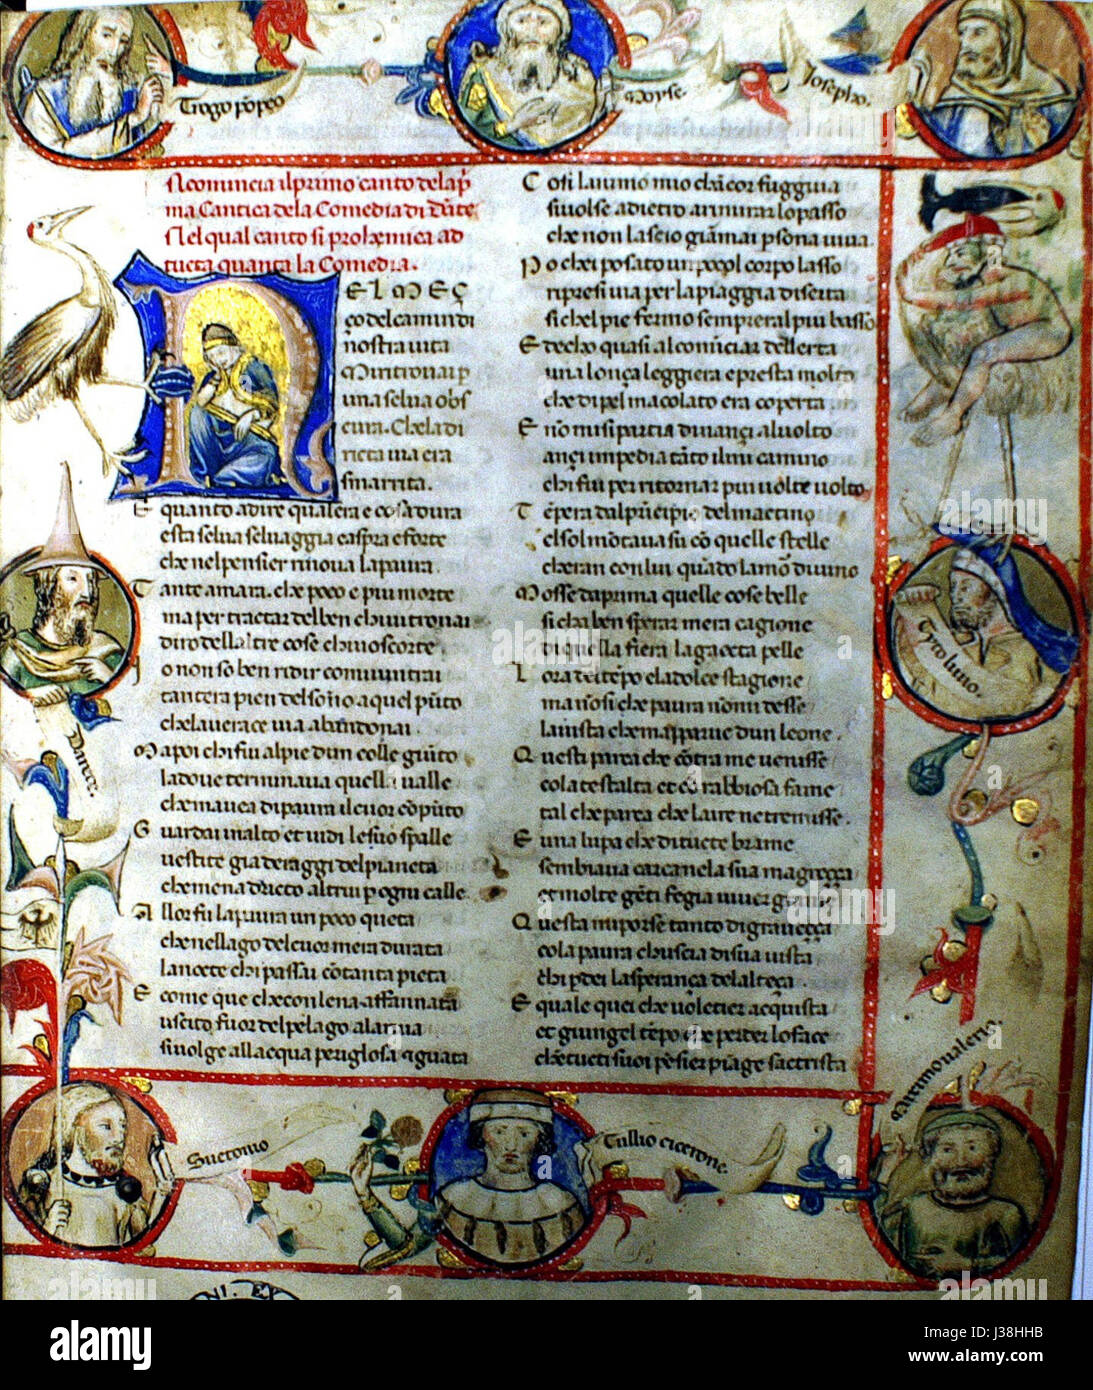 Trogo pōpeo
Moyse.
Josepho.
Nconuncia il primo canto de la pͥ
ma Cantica de la Comedia di Dāte
Nel qual canto si prohemica ad
tucta quanta la Comedia.
NEL MEÇ
ço del camin di
nostra vita
Mi ritrovai p̄
una selva obs
cura. Che la di
ricta via era
smarrita.
E quanto a dire qual era e cosa dura
esta selva selvaggia e aspra e forte
che nel pensier rinova la paura.
Tante amara. che poco e piu morte
ma per tractar del ben chi vi trovai
diro dell altre cose chi vi o scorte
Io non so ben ridir com vi intrai
tant era pien del sōno a quel pūto
che la verace via abandonai.
Ma poi chi fui al pie dun colle giūto
la dove terminava quella valle
che mavea di paura il cuor cōpūto
Guardai in alto et vidi le sue spalle
vestite gia de raggi del pianeta
che mena dricto altrui p̄ ogni calle.
Allor fu la paura un poco queta
che nel lago del cuor mera durata
la nocte chi passai cō tanta pieta
E come que che con lena affannata
uscito fuor del pelago a la riva
si volge all acqua perigliosa et guata
Cosi lanimo mio chancor fuggiva
si volse adietro a rimirar lo passo
che non lascio giamai p̄sona viva.
Po chei posato un poco il corpo lasso
ripresi via per la piaggia diserta
si chel pie fermo sempre era l piu basso
Et echo quasi al comīciar dell erta
una lonça leggiera e presta molto
che di pel macolato era coperta
E nō mi si partia dinançi al volto
ançi impedia tāto il mi camino
chi fui per ritornar piu volte volto
Tēp era dal prīcipio del mactino
el sol mōtava su cō quelle stelle
cheran con lui quādo lamor divino
Mosse da prima quelle cose belle
si cha ben sperar mera cagione
di quella fiera la gaeta pelle
Lora del tēpo e la dolce stagione
ma nō si che paura nō mi desse
la vista che mapparve dun leone.
Questi parea che cōtra me venisse
co la test alta et cō rabbiosa fame
tal che parea che laire ne tremisse.
E una lupa che di tucte brame
sembiava carca ne la sua magreçça
et molte gēti fe gia viver grame
Questa mi porse tanto di graveçça
co la paura chuscia di sua vista
chi p̄dei la sperança de l alteça.
E quale quei che volētier acquista
et giungel tēpo che perder lo face
che n tucti suoi pēsier piāge et sactrista
Dante.
Tito livio.
Suetonio
Tullio cicerone.
Maximo valerio.
NI. EX
alamy
alamy stock photo
J38HHB
www.alamy.com